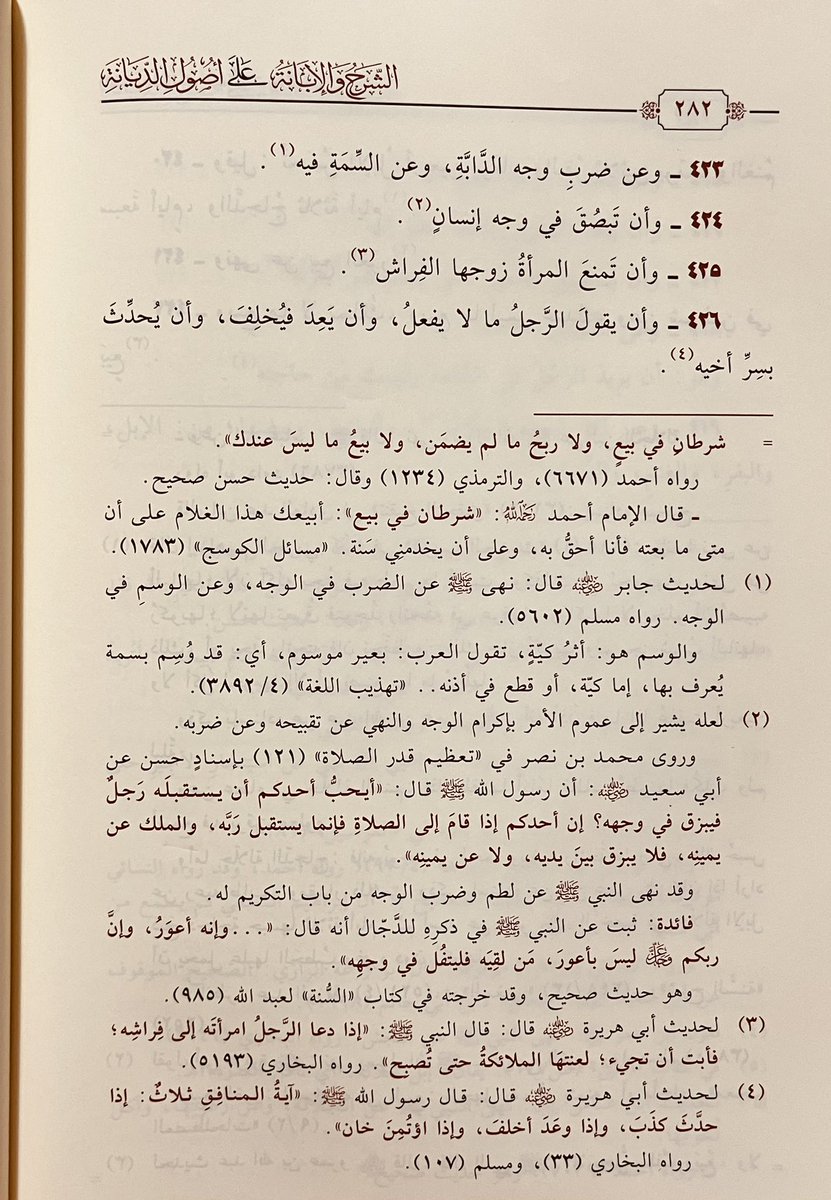 الشَّرحُ وَالإبَانَةُ عَلَى أُصُولِ الدِّيَانَةِ
٢٨٢
٤٢٣ ـ وعن ضربِ وجه الدَّابَّةِ، وعن السِّمَةِ فيه(١).
٤٢٤ ـ وأن تَبصُقَ في وجه إنسانٍ(٢).
٤٢٥ ـ وأن تَمنعَ المرأةُ زوجها الفِراش(٣).
٤٢٦ ـ وأن يقولَ الرَّجلُ ما لا يفعلُ، وأن يَعِدَ فيُخلِفَ، وأن يُحدِّثَ
بسِرِّ أخيه(٤).
= شرطانِ في بيعٍ، ولا ربحُ ما لم يضمَن، ولا بيعُ ما ليسَ عندك».
رواه أحمد (٦٦٧١)، والترمذي (١٢٣٤) وقال: حديث حسن صحيح.
ـ قال الإمام أحمد رحمه الله: «شرطان في بيع»: أبيعك هذا الغلام على أن
متى ما بعته فأنا أحقُّ به، وعلى أن يخدمني سَنة. «مسائل الكوسج» (١٧٨٣).
(١) لحديث جابر رضي الله عنه قال: نهى ﷺ عن الضرب في الوجه، وعن الوسمِ في
الوجه. رواه مسلم (٥٦٠٢).
والوسم هو: أثرُ كيّةٍ، تقول العرب: بعير موسوم، أي: قد وُسِم بسمة
يُعرف بها، إما كيّة، أو قطع في أذنه.. «تهذيب اللغة» (٤/ ٣٨٩٢).
(٢) لعله يشير إلى عموم الأمر بإكرام الوجه والنهي عن تقبيحه وعن ضربه.
وروى محمد بن نصر في «تعظيم قدر الصلاة» (١٢١) بإسنادٍ حسن عن
أبي سعيد رضي الله عنه: أن رسول الله ﷺ قال: «أيحبُّ أحدكم أن يستقبلَه رَجلٌ
فيبزق في وجهه؟ إن أحدكم إذا قامَ إلى الصلاةِ فإنما يستقبل رَبَّه، والملك عن
يمينِه، فلا يبزق بينَ يديه، ولا عن يمينِه».
وقد نهى النبي ﷺ عن لطم وضرب الوجه من باب التكريم له.
فائدة: ثبت عن النبي ﷺ في ذكرِهِ للدَّجّال أنه قال: «...وإنه أعوَرُ، وإنَّ
ربكم عز وجل ليسَ بأعورَ، مَن لقِيَه فليتفُل في وجهِه».
وهو حديث صحيح، وقد خرجته في كتاب «السُّنة» لعبد الله (٩٨٥).
(٣) لحديث أبي هريرة رضي الله عنه قال: قال النبي ﷺ: «إذا دعا الرَّجلُ امرأتَه إلى فِراشِه؛
فأبت أن تجيء؛ لعنتهَا الملائكةُ حتى تُصبِح». رواه البخاري (٥١٩٣).
(٤) لحديث أبي هريرة رضي الله عنه قال: قال رسول الله ﷺ: «آيةُ المنافقِ ثلاثٌ: إذا
حدَّثَ كذَبَ، وإذا وعَدَ أخلفَ، وإذا اؤتُمِنَ خان».
رواه البخاري (٣٣)، ومسلم (١٠٧).